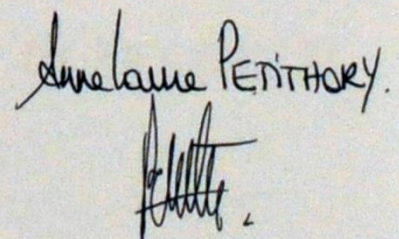 Anne Laure PETITHORY.